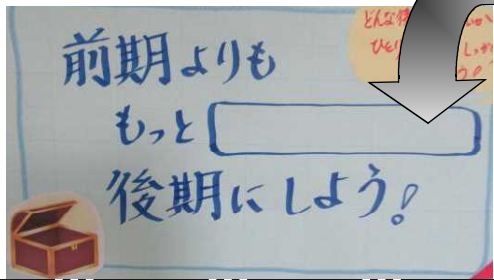 前期よりも
もっと
後期にしよう!
どんな
ひとり